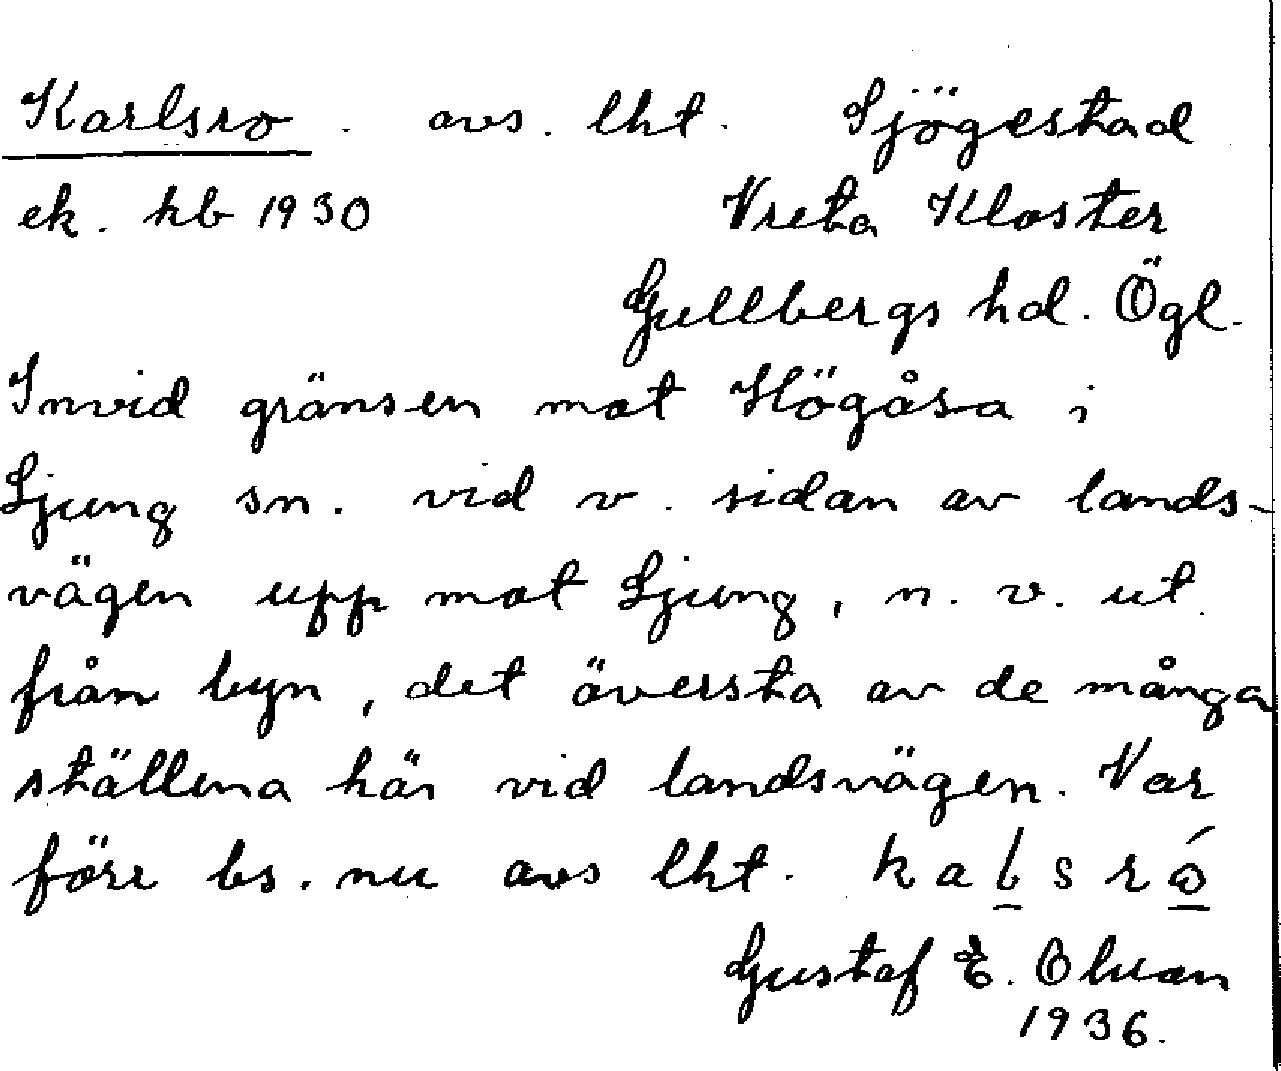 Karlsro . avs. lht. Sjögestad
ek. kb 1930 Vreta Kloster
Gullbergs hd. Ögl.
Invid gränsen mot Högåsa i
Ljung sn. vid v. sidan av lands-
vägen upp mot Ljung, n. v. ut
från byn, det översta av de många
ställena här vid landsvägen. Var
förr bs. nu avs lht.
Gustaf E.
1936.